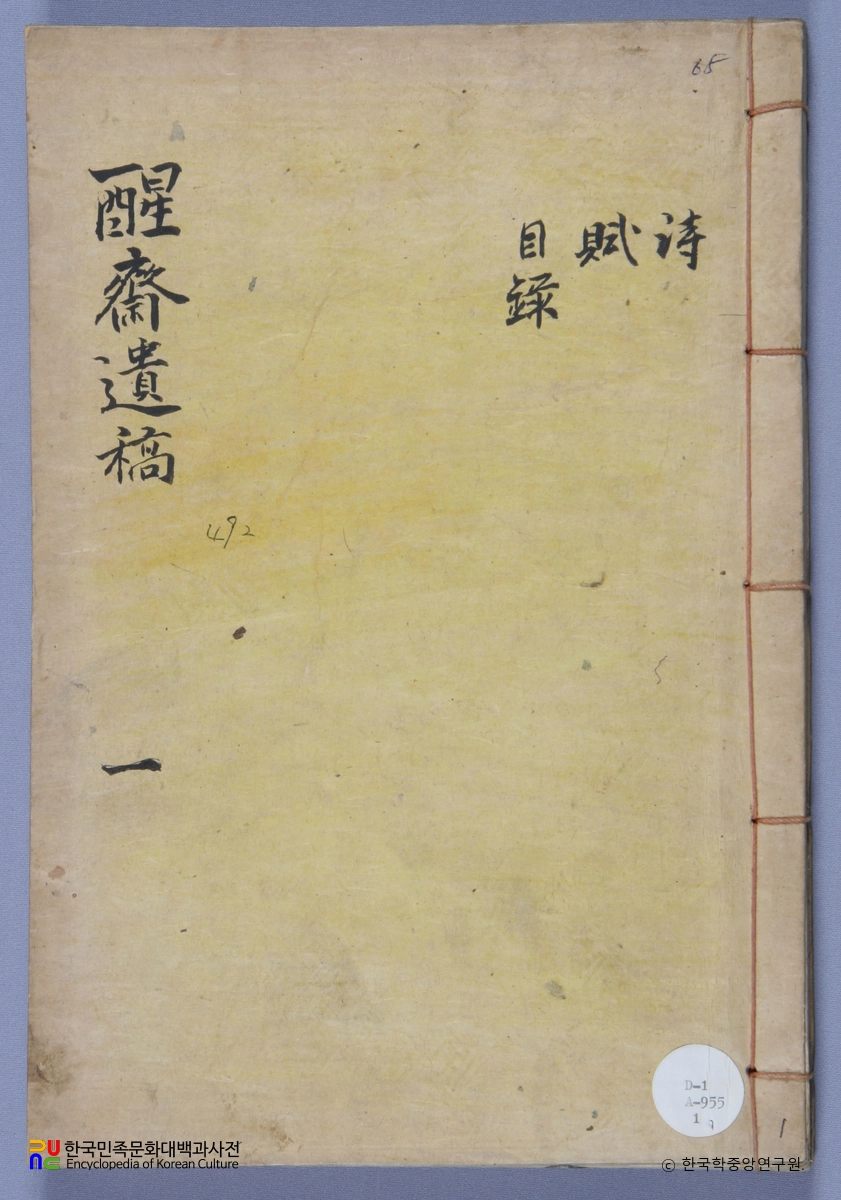 65
詩
賦
目錄
醒齋遺稿
一
492
D-1
A-955
1
1
한국민족문화대백과사전
Encyclopedia of Korean Culture
© 한국학중앙연구원